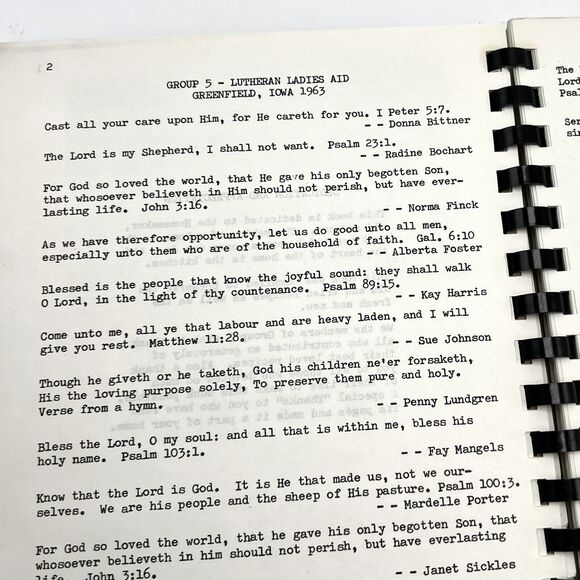 2
GROUP 5 - LUTHERAN LADIES AID
GREENFIELD, IOWA 1963
Cast all your care upon Him, for He careth for you. I Peter 5:7.
- - Donna Bittner
The Lord is my Shepherd, I shall not want. Psalm 23:1.
- - Radine Bochart
For God so loved the world, that He gave his only begotten Son,
that whosoever believeth in Him should not perish, but have ever-
lasting life. John 3:16.
- - Norma Finck
As we have therefore opportunity, let us do good unto all men,
especially unto them who are of the household of faith. Gal. 6:10
- - Alberta Foster
Blessed is the people that know the joyful sound: they shall walk
O Lord, in the light of thy countenance. Psalm 89:15.
- - Kay Harris
Come unto me, all ye that labour and are heavy laden, and I will
give you rest. Matthew 11:28.
- - Sue Johnson
Though he giveth or he taketh, God his children ne'er forsaketh,
His the loving purpose solely, To preserve them pure and holy.
Verse from a hymn.
- - Penny Lundgren
Bless the Lord, O my soul: and all that is within me, bless his
holy name. Psalm 103:1.
- - Fay Mangels
Know that the Lord is God. It is He that made us, not we our-
selves. We are his people and the sheep of His pasture. Psalm 100:3.
- - Mardelle Porter
For God so loved the world, that he gave his only begotten Son, that
whosoever believeth in him should not perish, but have everlasting
life. John 3:16.
- - Janet Sickles
The
Lord
Psal
Ser
sin